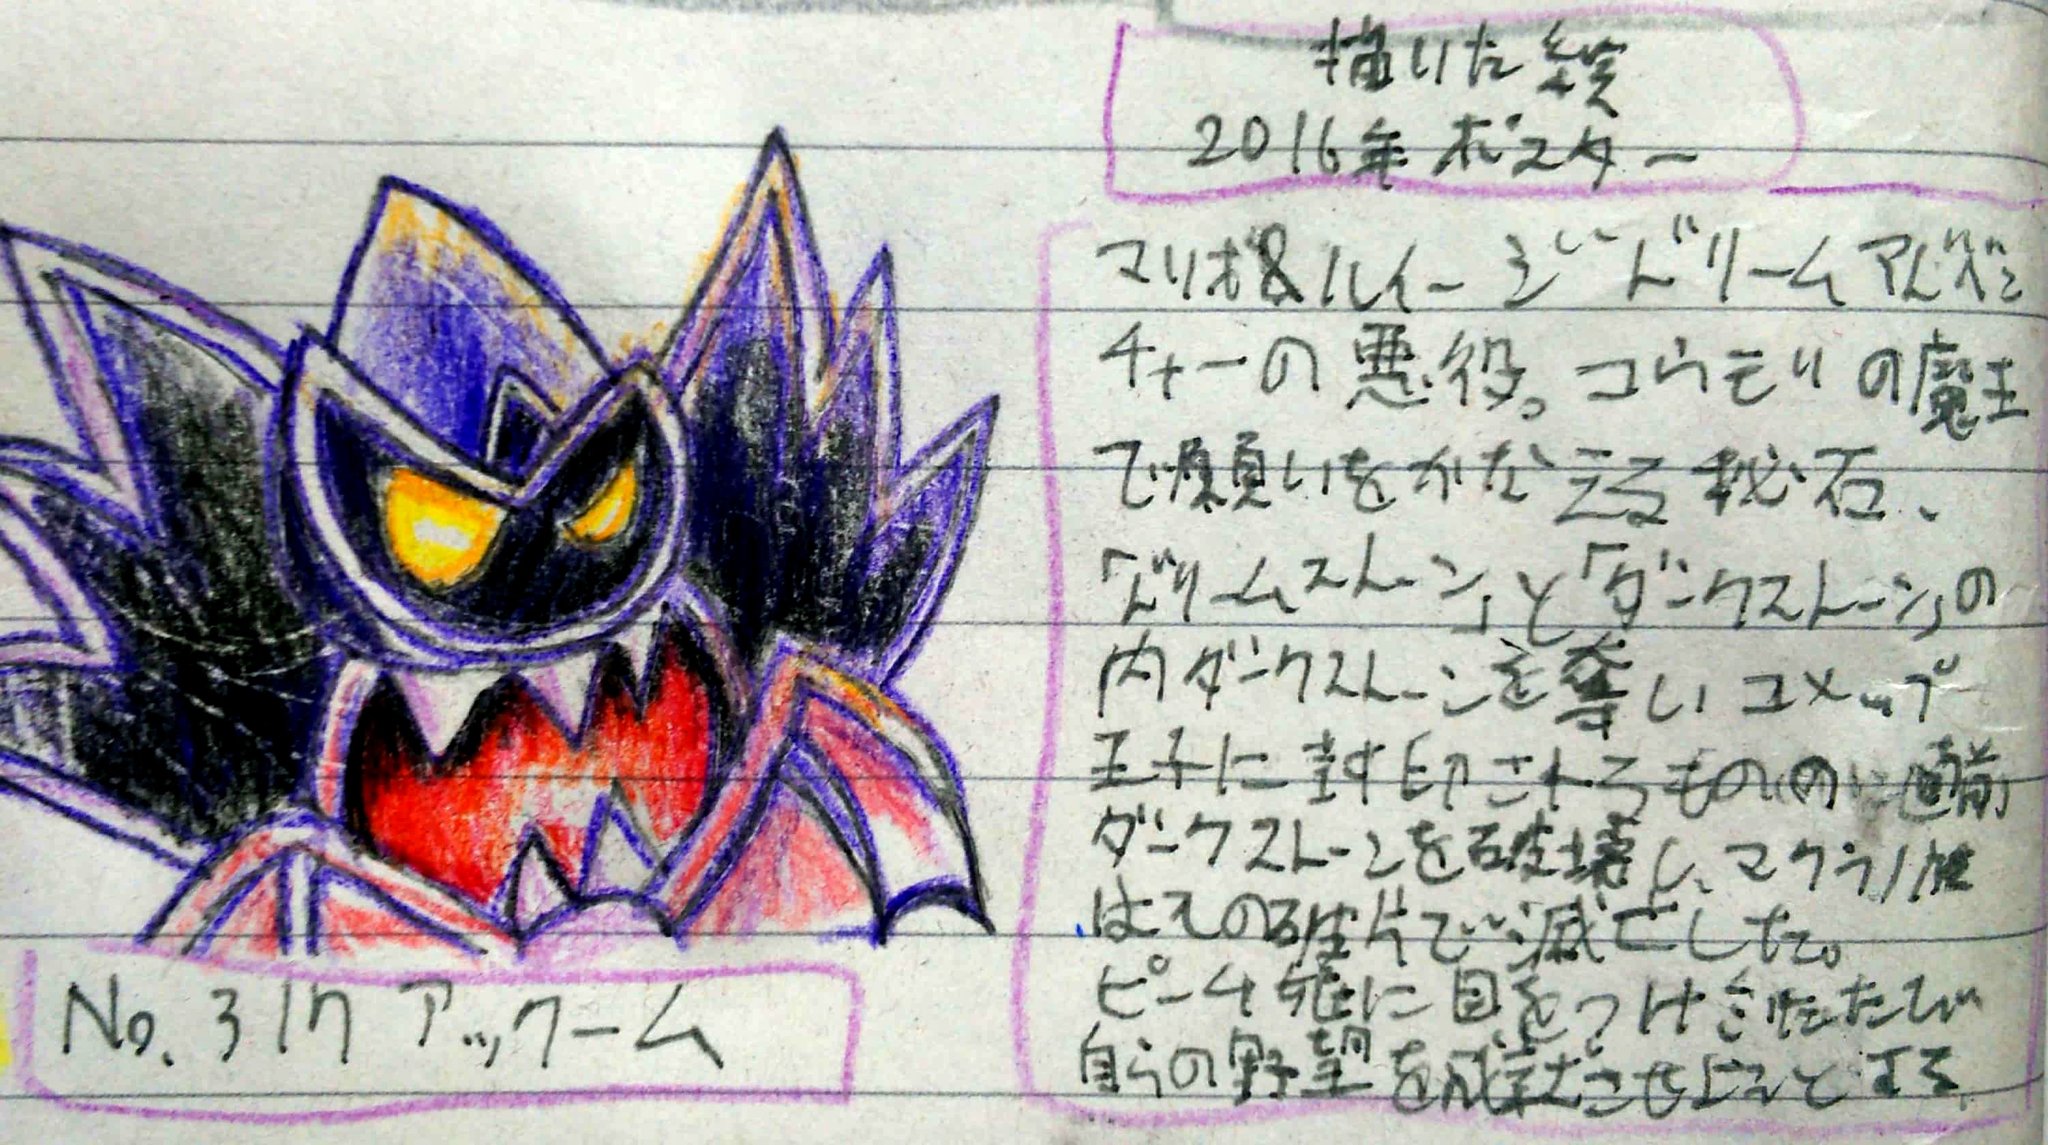 描いた絵
2016年ポスター
マリオ&ルイージドリームアドベン
チャーの悪役。コウモリの魔王
で願いをかなえる秘石、
「ドリームストーン」と「ダークストーン」の
内ダークストーンを奪いユメップ
王子に封印されるものの直前
ダークストーンを破壊し、マクラノ族
はその破片で滅亡した。
ピーチ姫に目をつけふたたび
自らの野望を成就させようとする
No.317 アックーム